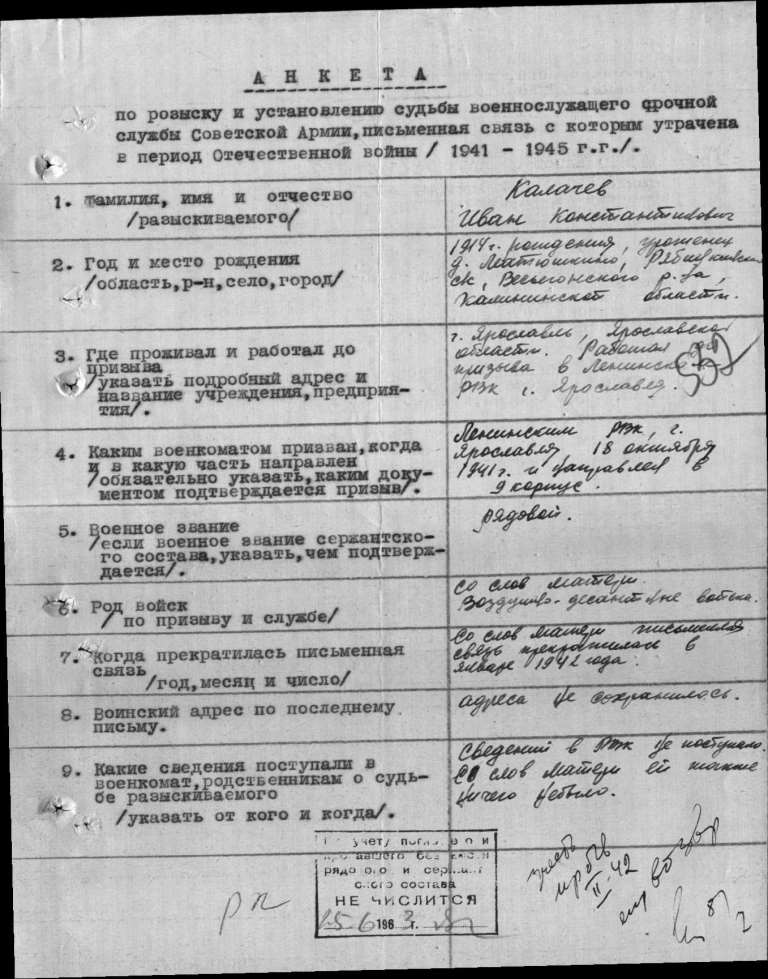 АНКЕТА
по розыску и установлению судьбы военнослужащего срочной
службы Советской Армии, письменная связь с которым утрачена
в период Отечественной войны / 1941 - 1945 г.г./.
1. Фамилия, имя и отчество
/разыскиваемого/
Калачев
Иван Константинович
2. Год и место рождения
/область, р-н, село, город/
1914г. рождения, уроженец
д. Матюшкино,
с/с, Весьегонского р-на,
Калининской области.
3. Где проживал и работал до
призыва
/указать подробный адрес и
название учреждения, предприя-
тия/.
г. Ярославль, Ярославской
области. Работал до
призыва в Ленинском
РВК г. Ярославля.
4. Каким военкоматом призван, когда
и в какую часть направлен
/обязательно указать, каким доку-
ментом подтверждается призыв/.
Ленинским РВК, г.
Ярославля 18 октября
1941г. и направлен в
9 корпус.
5. Военное звание
/если военное звание сержантско-
го состава, указать, чем подтверж-
дается/.
рядовой.
6. Род войск
/ по призыву и службе/
со слов матери.
Воздушно-десантные войска.
7. Когда прекратилась письменная
связь
/год, месяц и число/
Со слов матери письменная
связь прекратилась в
январе 1942 года.
8. Воинский адрес по последнему
письму.
адреса не сохранилось.
9. Какие сведения поступали в
военкомат, родственникам о судь-
бе разыскиваемого
/указать от кого и когда/.
Сведений в РВК не поступало.
Со слов матери ей также
ничего не было.
По учету
рядового и сержант
ского состава
НЕ ЧИСЛИТСЯ
196 г.
II 42